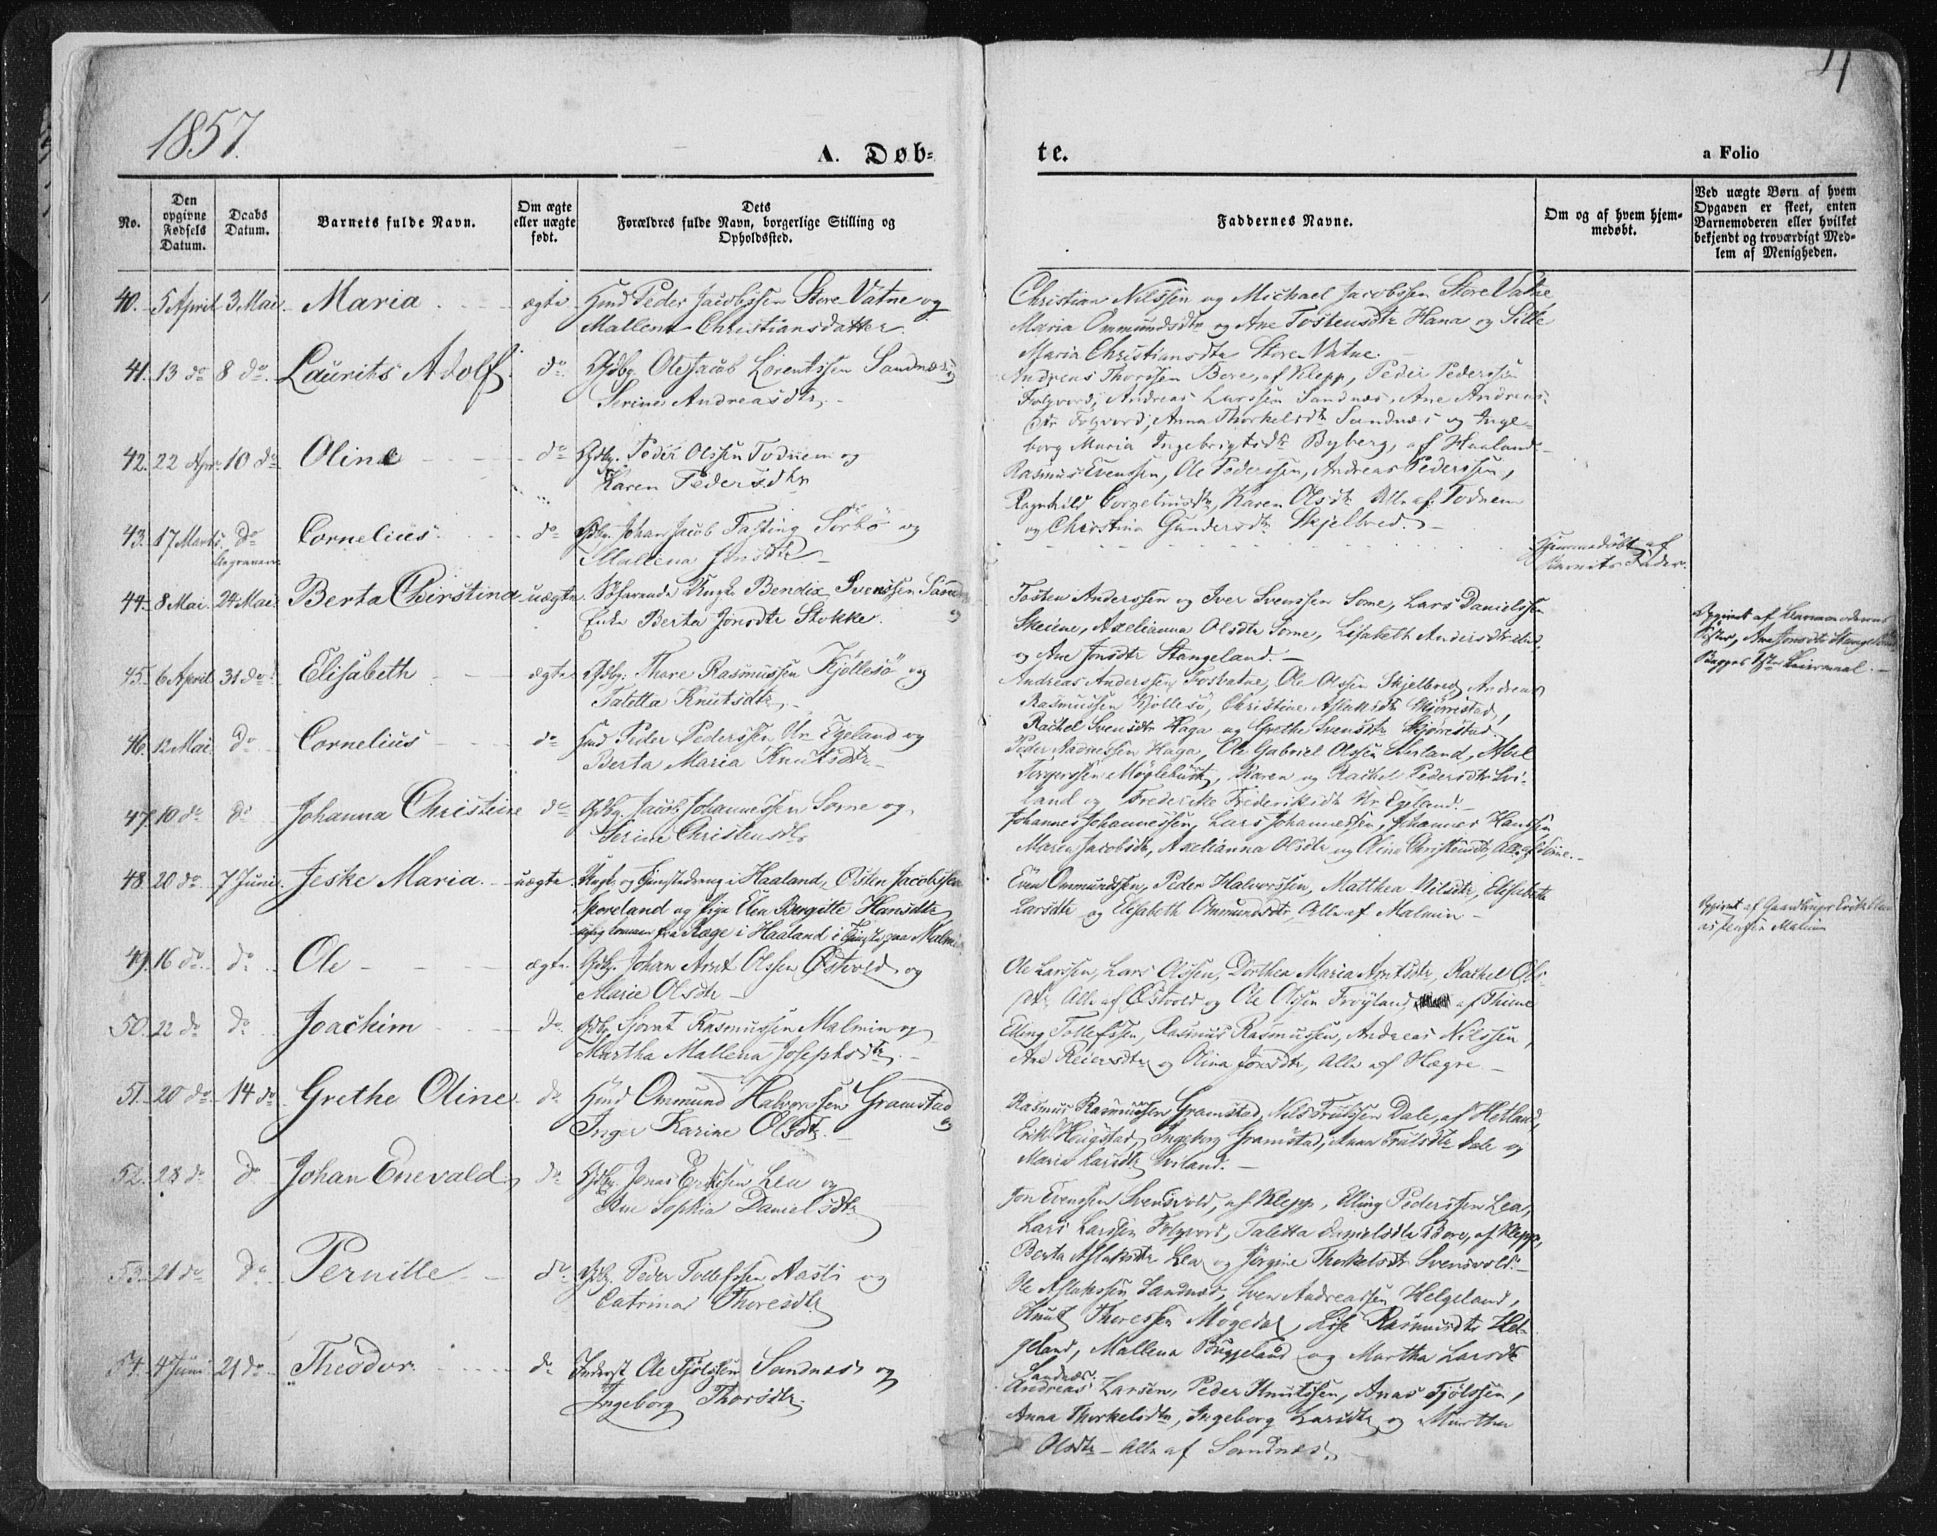 1857.
4
A. Døb-
te.
a Folio
No.
Den opgivne Fødsels Datum.
Daabs Datum.
Barnets fulde Navn.
Om ægte eller uægte født.
Dets Forældres fulde Navn, borgerlige Stilling og Opholdssted.
Faddernes Navne.
Om og af hvem hjemmedøbt.
Ved uægte Børn af hvem Opgaven er skeet, enten Barnemoderen eller hvilket bekjendt og troværdigt Medlem af Menigheden.
40. 5 April 3 Mai. Maria ægte Hmd Peder Jacobssen Store Vatne og
Mallena Christiansdatter.
Christian Nilssen og Michael Jacobssen Store Vatne,
Maria Ommundsdtr og Ane Tostensdtr Hana og Sille
Maria Christiansdtr Store Vatne.
41. 13 do 8 do. Laurits Adolf. do. Gdbg. Ole Jacob Lorentssen Sandnæs og
Serine Andreasdtr.
Andreas Thorssen Bore, af Klepp, Peder Pederssen
Folqvord, Andreas Larssen Sandnæs, Ane Andreas-
dtr Folqvord, Anna Thorkelsdtr Sandnæs og Inge-
borg Maria Ingebrigtsdtr Byberg, af Haaland.
42. 22 Apr. 10 do Oline do Gdbg. Peder Olssen Todnem og
Karen Pedersdtr
Rasmus Evenssen, Ole Pederssen, Andreas Pederssen,
Ragnhild Corneliusdtr, Karen Olsdtr Alle af Todnem
og Christina Gundersdtr Skjelbred.
43. 17 Marts. do Cornelius. do Gdbg. Johan Jacob Fasting Sørbø og
Mallena Jonsdtr
Hjemmedøbt af
Barnets Fader.
44. 8 Mai. 24 Mai. Berta Christina uægte. Søfarende Bendix Svenssen Sandnæs og
Enke Berta Jonsdtr Stokke.
Tosten Anderssen og Iver Svenssen Some, Lars Danielssen
Skeiene, Axelianna Olsdtr Some, Lisabeth Andersdtr
og Ane Jonsdtr Stangeland.
Opgivet af Barnemoderens
Søster, Ane Jonsdtr Stangeland
Begges 1ste Leiermaal.
45. 6 April. 31 do Elisabeth ægte Gdbg. Thore Rasmussen Kjøllesø og
Taletta Knutsdtr.
Andreas Anderssen Fosvatne, Ole Olssen Skjelbred, Andreas
Rasmussen Kjøllesø, Christine Aslaksdtr Skjørestad,
Rachel Svensdtr Haga og Grethe Svensdtr Skjørestad
46. 12 Mai do Cornelius do Hmd Peder Pederssen Nr Egeland og
Berta Maria Knutsdtr
Peder Aadnessen Haga, Ole Gabriel Olssen, Abel
Torgerssen Møglebust, Karen og Rachel Pedersdtr Svi-
land og Frederike Frederiksdtr Nr Egeland.
47. 10 do do Johanna Christine do Gdbg. Jacob Johannessen Some og
Serine Christensdtr
Johannes Johannessen, Lars Johannessen, Johannes Hanssen
Maren Jacobsdtr, Axelianna Olsdtr og Olina Christensdtr, Alle af Some.
48. 20 do 7 Juni. Jeske Maria. uægte. Ungk. og Tjenestedreng i Haaland, Østen Jacobssen
Joreland og Pige Elen Bergitte Hansdtr,
fra Ræge i Haaland i Tjeneste paa Malmin
Even Ommundssen, Peder Halvorssen, Matthea Nilsdtr, Elisabeth
Larsdtr og Elisabeth Ommundsdtr Alle af Malmin
Opgivet af Gaardbruger
Malmin
49. 16 do. do. Ole ægte. Gdbg. Johan Arnt Olssen Østvold og
Marie Olsdtr
Ole Larssen, Lars Olssen, Dorthea Maria Arntsdtr, Rachel Ols-
dtr Alle af Østvold og Ole Olssen Frøyland, af Thime
50. 22 do do Joachim do. Gdbg. Sjovat Rasmussen Malmin og
Martha Mallena Josephsdtr.
Elling Tollefssen, Rasmus Rasmussen, Andreas Nilssen,
Ane Reiersdtr og Olina Joresdtr, Alle af Hægre
51. 20 do. 14 do. Grethe Oline do Hmd Ommund Halvorssen Gramstad og
Inger Karine Olsdtr.
Rasmus Rasmussen Gramstad, Nils Trulssen Dale, af Hetland,
Erik Hougstad, Ingeborg Gramstad, Anna Trulsdtr Dale og
Maria Larsdtr Sviland.
52. 28 do do Johan Enevald do Gdbg. Jonas Erikssen Lea og
Ane Sophia Danielsdtr
Jon Evenssen Svensvold, af Klepp, Elling Pederssen Lea,
Lars Larssen Folqvord, Taletta Danielsdtr Bore, af Klepp,
Berta Aslaksdtr Lea og Jørgine Thorkelsdtr Svensvold.
53. 21 do do Pernille do. Gdbg. Peder Tollefssen Aasti og
Catrina Thoresdtr
Ole Aslakssen Sandnæs, Sven Andreassen Helgeland,
Knut Thoressen Møgedal, Lise Rasmusdtr Hel-
geland, Mallena Buggeland og Martha Larsdtr
Sandnæs.
54. 4 Juni 21 do Theodor do Inderst Ole Fjølssen Sandnæs og
Ingeborg Thorsdtr.
Andreas Larsen, Peder Knutssen, Anas Fjølssen,
Anna Thorkelsdtr, Ingeborg Larsdtr og Martha
Olsdtr – Alle af Sandnæs.